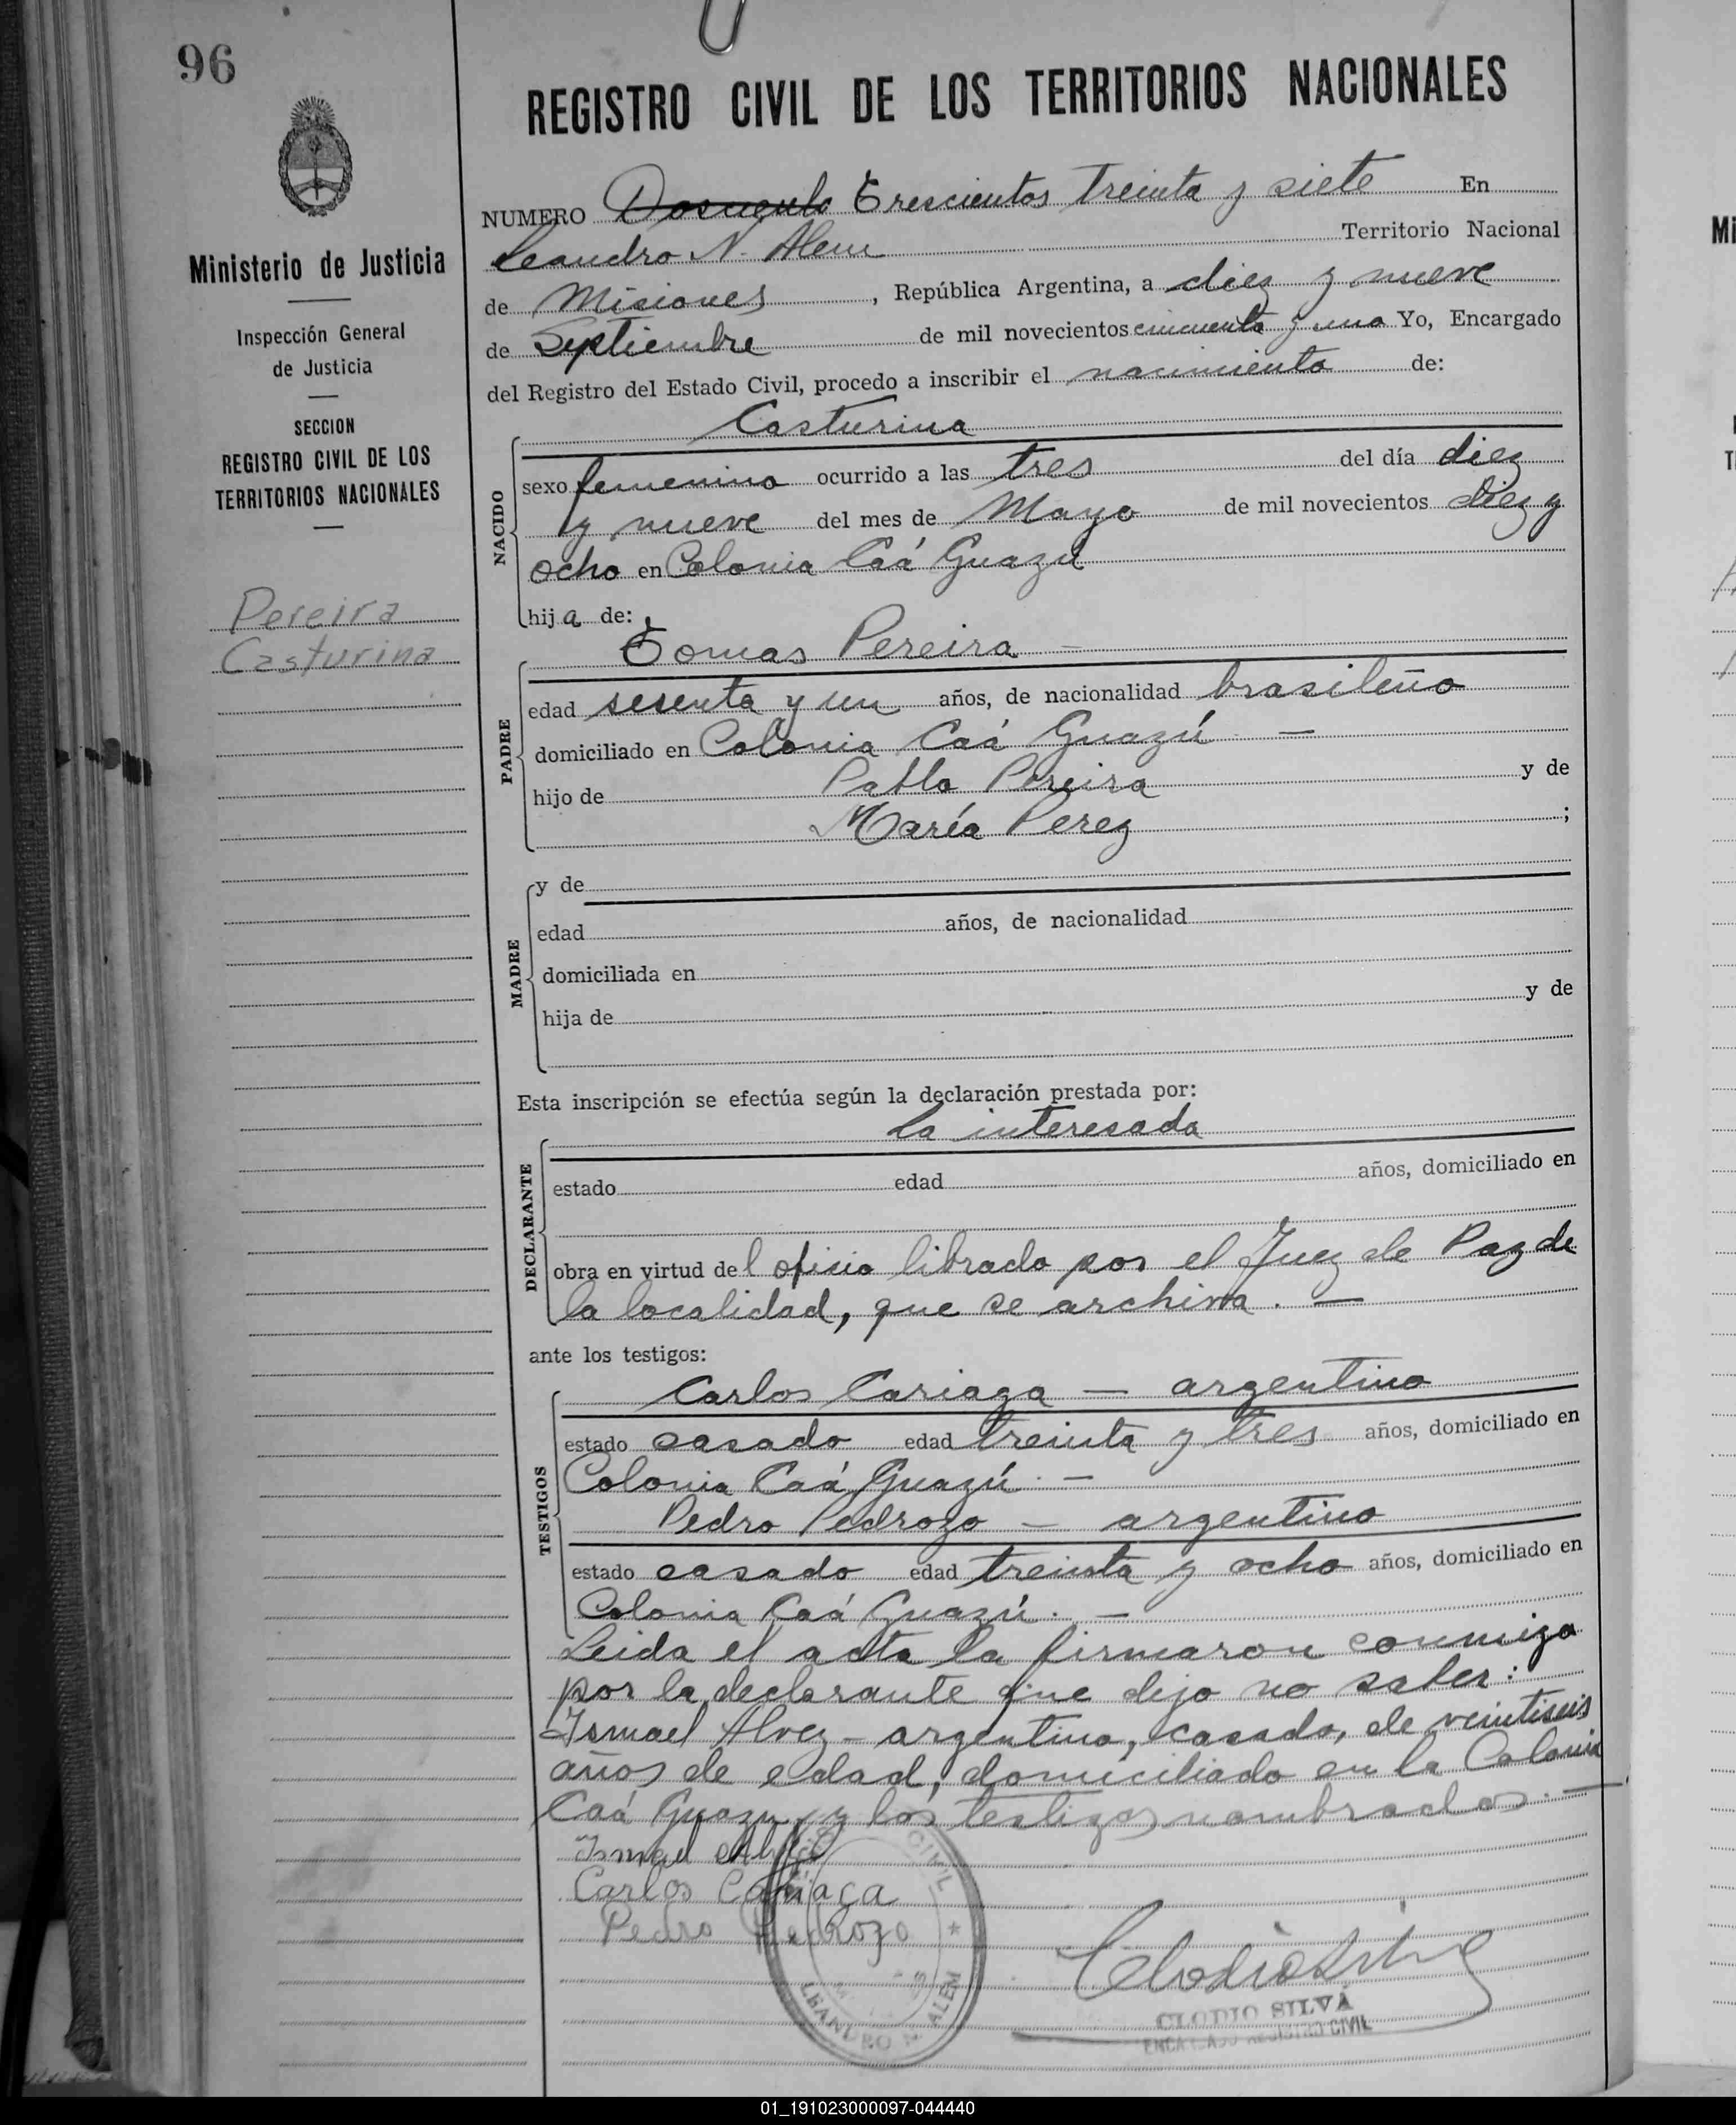 96
REGISTRO CIVIL DE LOS TERRITORIOS NACIONALES
Ministerio de Justicia
Inspección General
de Justicia
SECCION
REGISTRO CIVIL DE LOS
TERRITORIOS NACIONALES
Pereira
Casturina
NUMERO Trescientos Treinta y siete En
Leandro N. Alem Territorio Nacional
de Misiones, República Argentina, a diez y nueve
de Septiembre de mil novecientos cincuenta y uno Yo, Encargado
del Registro del Estado Civil, procedo a inscribir el nacimiento de:
Casturina
NACIDO
sexo femenino ocurrido a las tres del día diez
y nueve del mes de Mayo de mil novecientos diez y
ocho en Colonia Caá Guazú
hija de:
Tomas Pereira -
PADRE
edad sesenta y un años, de nacionalidad brasileño
domiciliado en Colonia Caá Guazú -
hijo de Pablo Pereira y de
María Perez ;
MADRE
y de
edad años, de nacionalidad
domiciliada en
hija de y de
Esta inscripción se efectúa según la declaración prestada por:
la interesada
DECLARANTE
estado edad años, domiciliado en
obra en virtud del oficio librado por el Juez de Paz de
la localidad, que se archiva. -
ante los testigos:
Carlos Cariaga - argentino
TESTIGOS
estado casado edad treinta y tres años, domiciliado en
Colonia Caá Guazú. -
Pedro Pedrozo - argentino
estado casado edad treinta y ocho años, domiciliado en
Colonia Caá Guazú. -
Leida el acta la firmaron conmigo
por la declarante que dijo no saber:
Ismael Alvez - argentino, casado, de veintiseis
años de edad, domiciliado en la Colonia
Caá Guazu, y los testigos nombrados. -
Ismael
Carlos Cariaga
Pedro Pedrozo
CIVIL
LEANDRO N. ALEM
CLODIO SILVA
ENCARGADO REGISTRO CIVIL
01_191023000097-044440